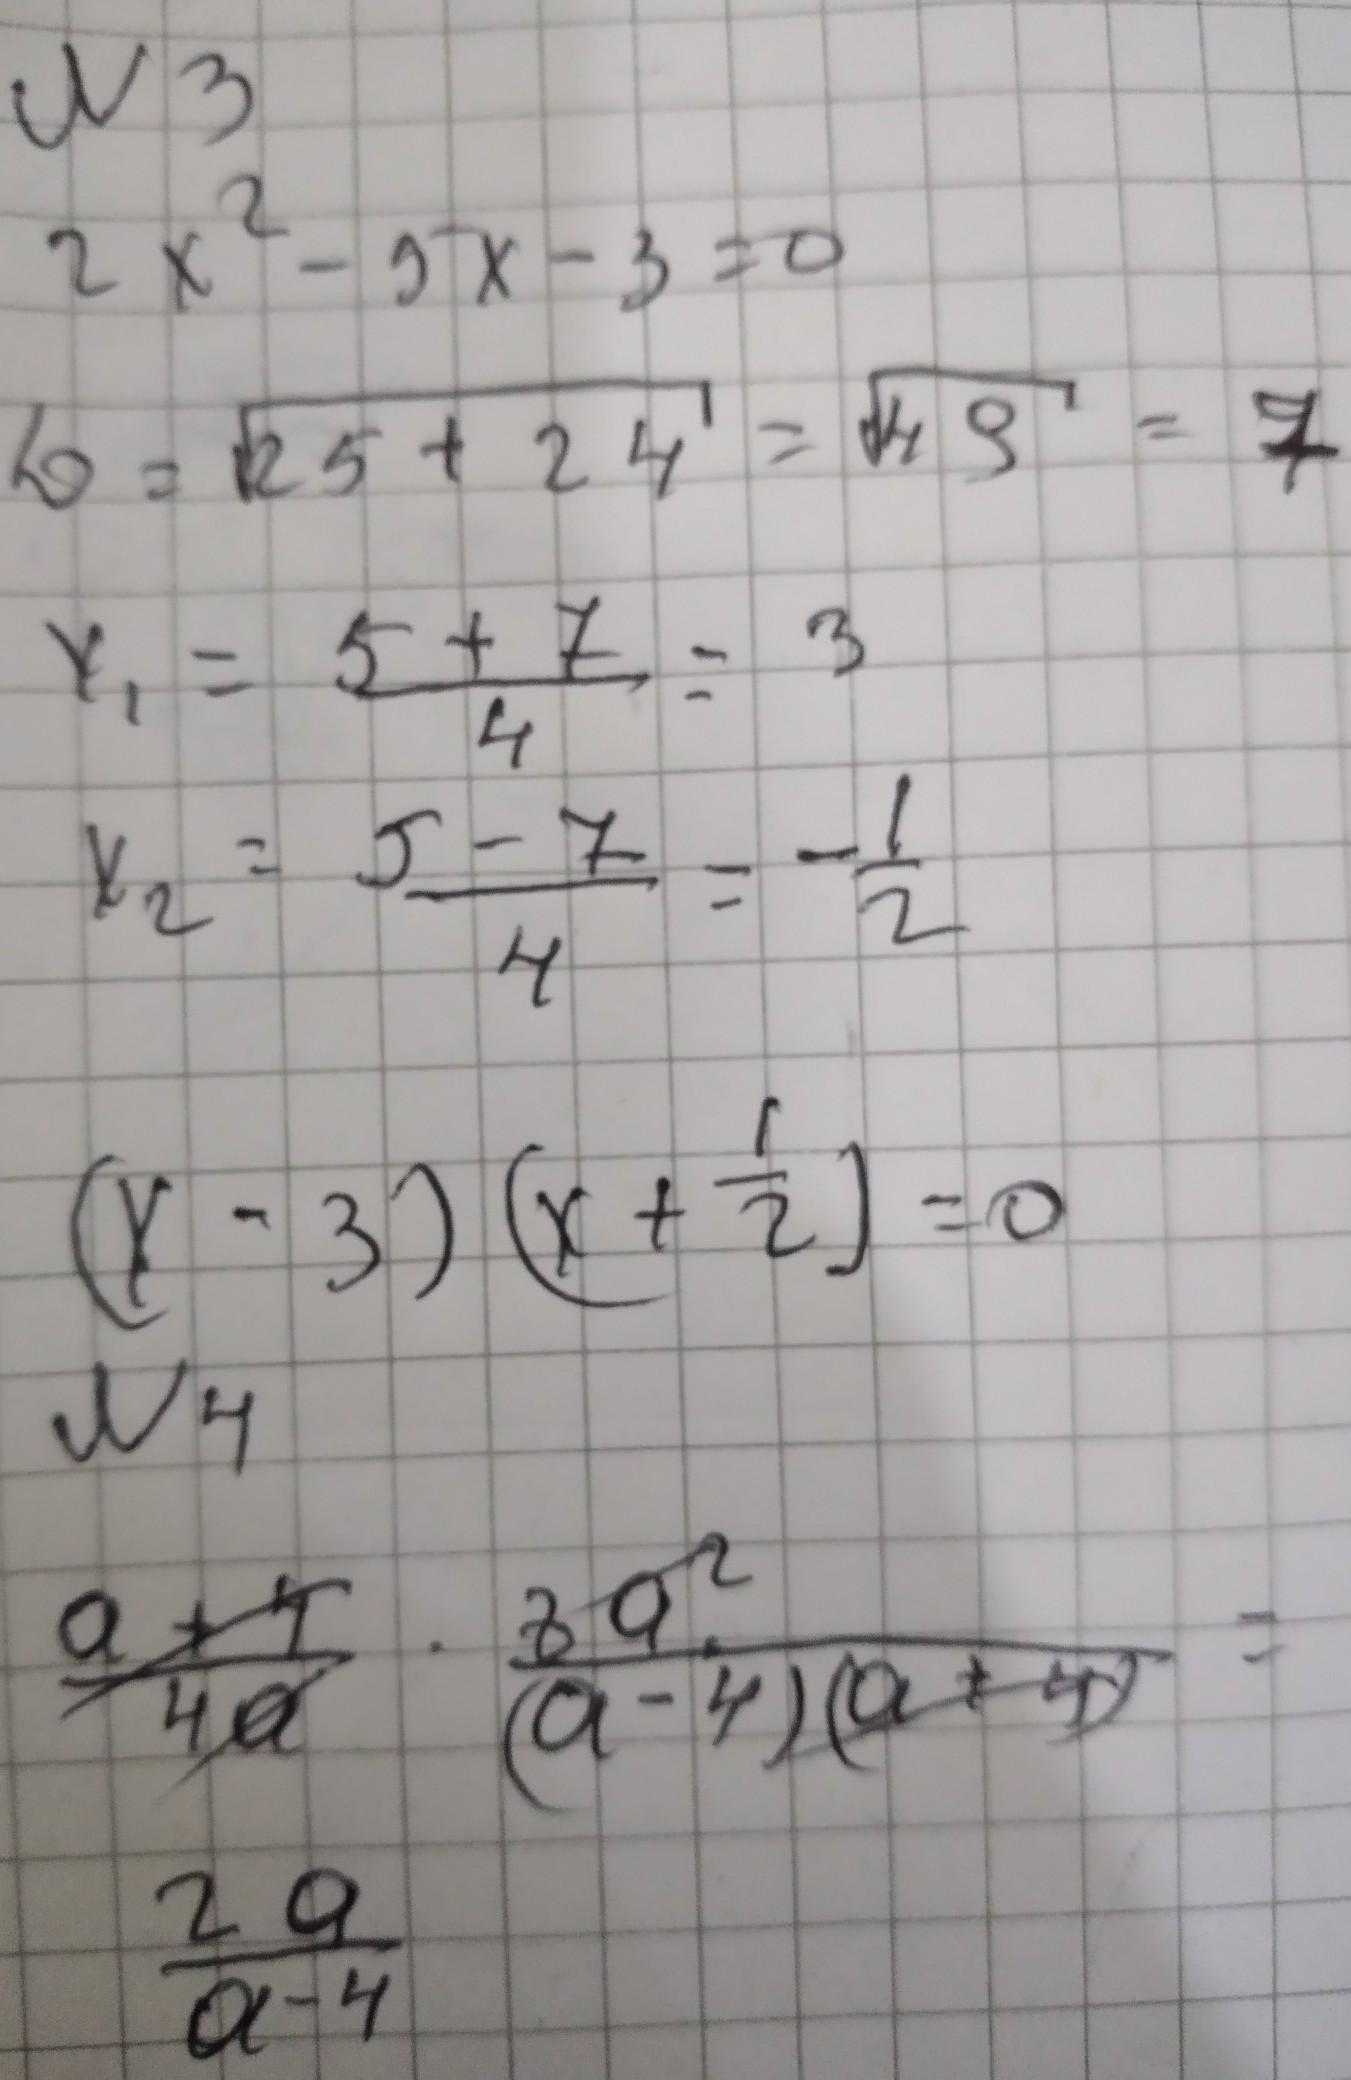 N 3
2x² - 5x - 3 = 0
D = √25 + 24 = √49 = 7
x₁ = (5 + 7)/4 = 3
x₂ = (5 - 7)/4 = -1/2
(x - 3)(x + 1/2) = 0
N 4
(a + 4)/(4a) · (8a²)/((a - 4)(a + 4)) =
2a/(a - 4)